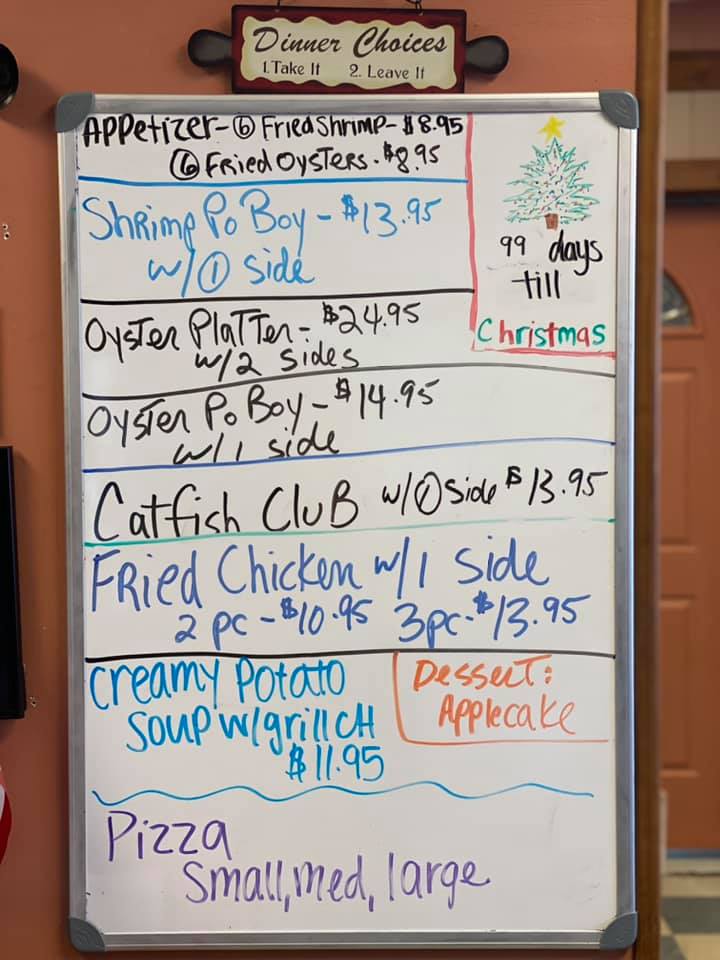 Dinner Choices
1. Take It 2. Leave It
Appetizer - 6 Fried Shrimp - $8.95
6 Fried Oysters - $8.95
Shrimp Po Boy - $13.95
w/1 side
99 days
till
Christmas
Oyster Platter - $24.95
w/2 sides
Oyster Po Boy - $14.95
w/1 side
Catfish Club w/1 side $13.95
Fried Chicken w/1 side
2 pc - $10.95 3pc - $13.95
Creamy Potato
Soup w/grill CH
$11.95
Dessert:
Applecake
Pizza
Small, med, large